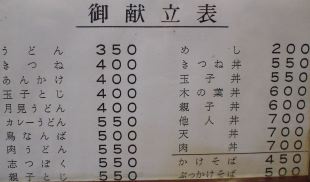 御献立表
うどん 350
きつね 400
あんかけ 400
玉子とじ 400
月見うどん 400
カレーうどん 550
鳥なんば 500
肉うどん 550
志っぽく 550
親子とじ 550
めし 200
きつね丼 550
玉子丼 550
木の葉丼 600
親子丼 600
他人丼 700
天丼 700
肉丼 700
かけそば 450
ぶっかけそば 500